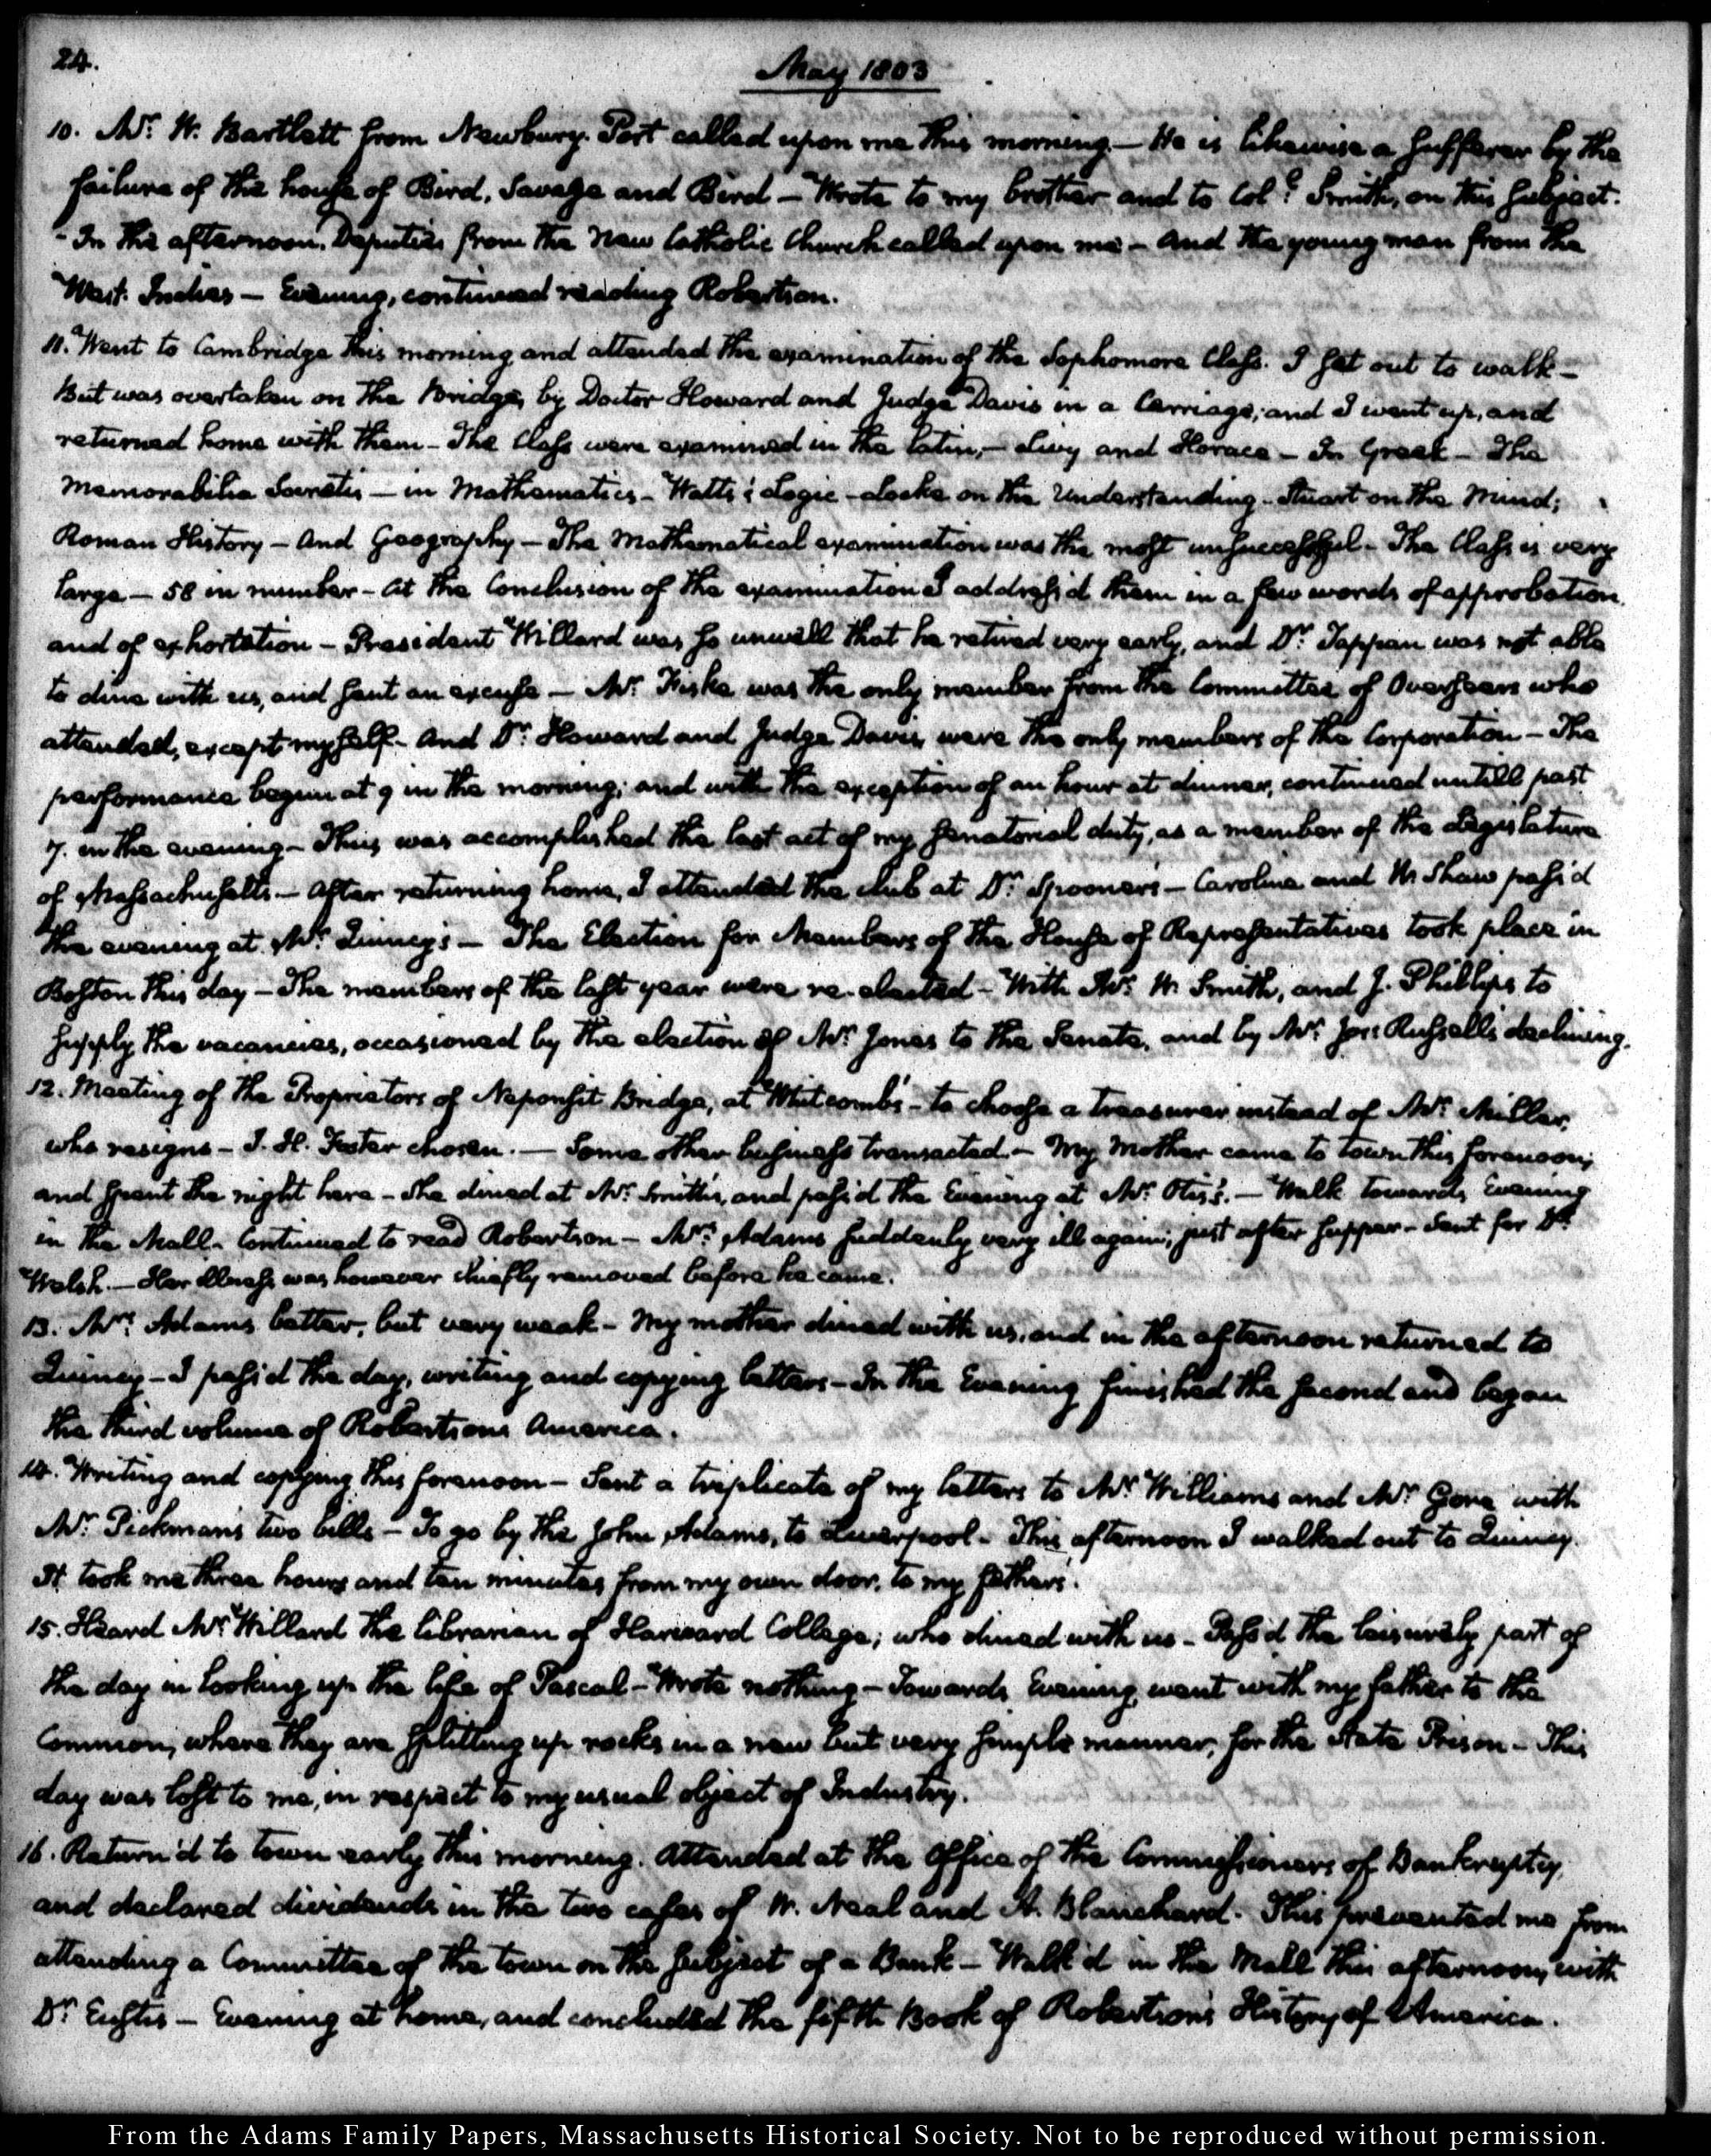 24.
May 1803
10. Mr. W. Bartlett from Newbury-Port called upon me this morning — He is likewise a sufferer by the
failure of the house of Bird, Savage and Bird — Wrote to my brother and to Coll. Smith, on this subject.
- In the afternoon, Deputies from the new Catholic Church called upon me — And the young man from the
West-Indies — Evening, continued reading Robertson.
11. Went to Cambridge this morning and attended the examination of the Sophomore Class. I set out to walk —
But was overtaken on the Bridge, by Doctor Howard and Judge Davis in a Carriage; and I went up, and
returned home with them — The Class were examined in the latin, — Livy and Horace — In Greek — The
Memorabilia Socratis — in Mathematics — Watts's Logic — Locke on the Understanding — Stuart on the Mind;
Roman History — And Geography — The Mathematical examination was the most unsuccessful — The Class is very
large — 58 in number — At the Conclusion of the examination I address'd them in a few words of approbation
and of exhortation — President Willard was so unwell that he retired very early, and Dr. Tappan was not able
to dine with us, and sent an excuse — Mr. Fiske was the only member from the Committee of Overseers who
attended, except myself — And Dr. Howard and Judge Davis, were the only members of the Corporation — The
performance began at 9 in the morning; and with the exception of an hour at dinner, continued untill past
7. in the evening — Thus was accomplished the last act of my Senatorial duty, as a member of the Legislature
of Massachusetts — After returning home, I attended the club at Dr. Spooner's — Caroline and W. Shaw pass'd
the evening at Mr. Quincy's — The Election for Members of the House of Representatives took place in
Boston this day — The members of the last year were re-elected — With Mr. W. Smith, and J. Phillips to
supply the vacancies, occasioned by the election of Mr. Jones to the Senate, and by Mr. Jos: Russell's declining.
12. Meeting of the Proprietors of Neponsit Bridge, at Whitcomb's — to choose a treasurer instead of Mr. Miller,
who resigns — J. H. Foster chosen. — Some other business transacted — My Mother came to town this forenoon;
and spent the night here — She dined at Mr. Smith's, and pass'd the Evening at Mr. Otis's. — Walk towards Evening
in the Mall — Continued to read Robertson — Mrs. Adams suddenly very ill again; just after supper — Sent for Dr.
Welsh. — Her illness was however chiefly removed before he came.
13. Mrs. Adams better, but very weak — My mother dined with us, and in the afternoon returned to
Quincy — I pass'd the day, writing and copying letters — In the Evening finished the second and began
the third volume of Robertsons America.
14. Writing and copying this forenoon — Sent a triplicate of my letters to Mr. Williams and Mr. Gore with
Mr. Pickman's two bills — To go by the John Adams, to Liverpool — This afternoon I walked out to Quincy.
It took me three hours and ten minutes from my own door, to my fathers.
15. Heard Mr. Willard the librarian of Harvard College; who dined with us — Pass'd the leisurely part of
the day in looking up the life of Pascal — Wrote nothing — Towards Evening, went with my father to the
Common, where they are splitting up rocks in a new but very simple manner, for the State Prison — This
day was lost to me, in respect to my usual object of Industry.
16. Return'd to town early this morning. Attended at the Office of the Commissioners of Bankruptcy,
and declared dividends in the two cases of W. Neal and A. Blanchard. This prevented me from
attending a Committee of the town on the subject of a Bank — Walk'd in the Mall this afternoon, with
Dr. Eustis — Evening at home, and concluded the fifth Book of Robertson's History of America.
From the Adams Family Papers, Massachusetts Historical Society. Not to be reproduced without permission.